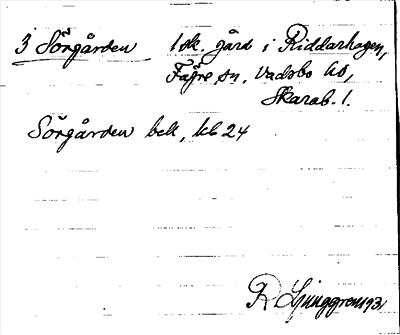 3 Sörgården 1 sk. gård i Riddarhagen,
Fägre sn. Vadsbo hd,
Skarab. l.
Sörgården bek, kb 24
R Ljunggren 1931